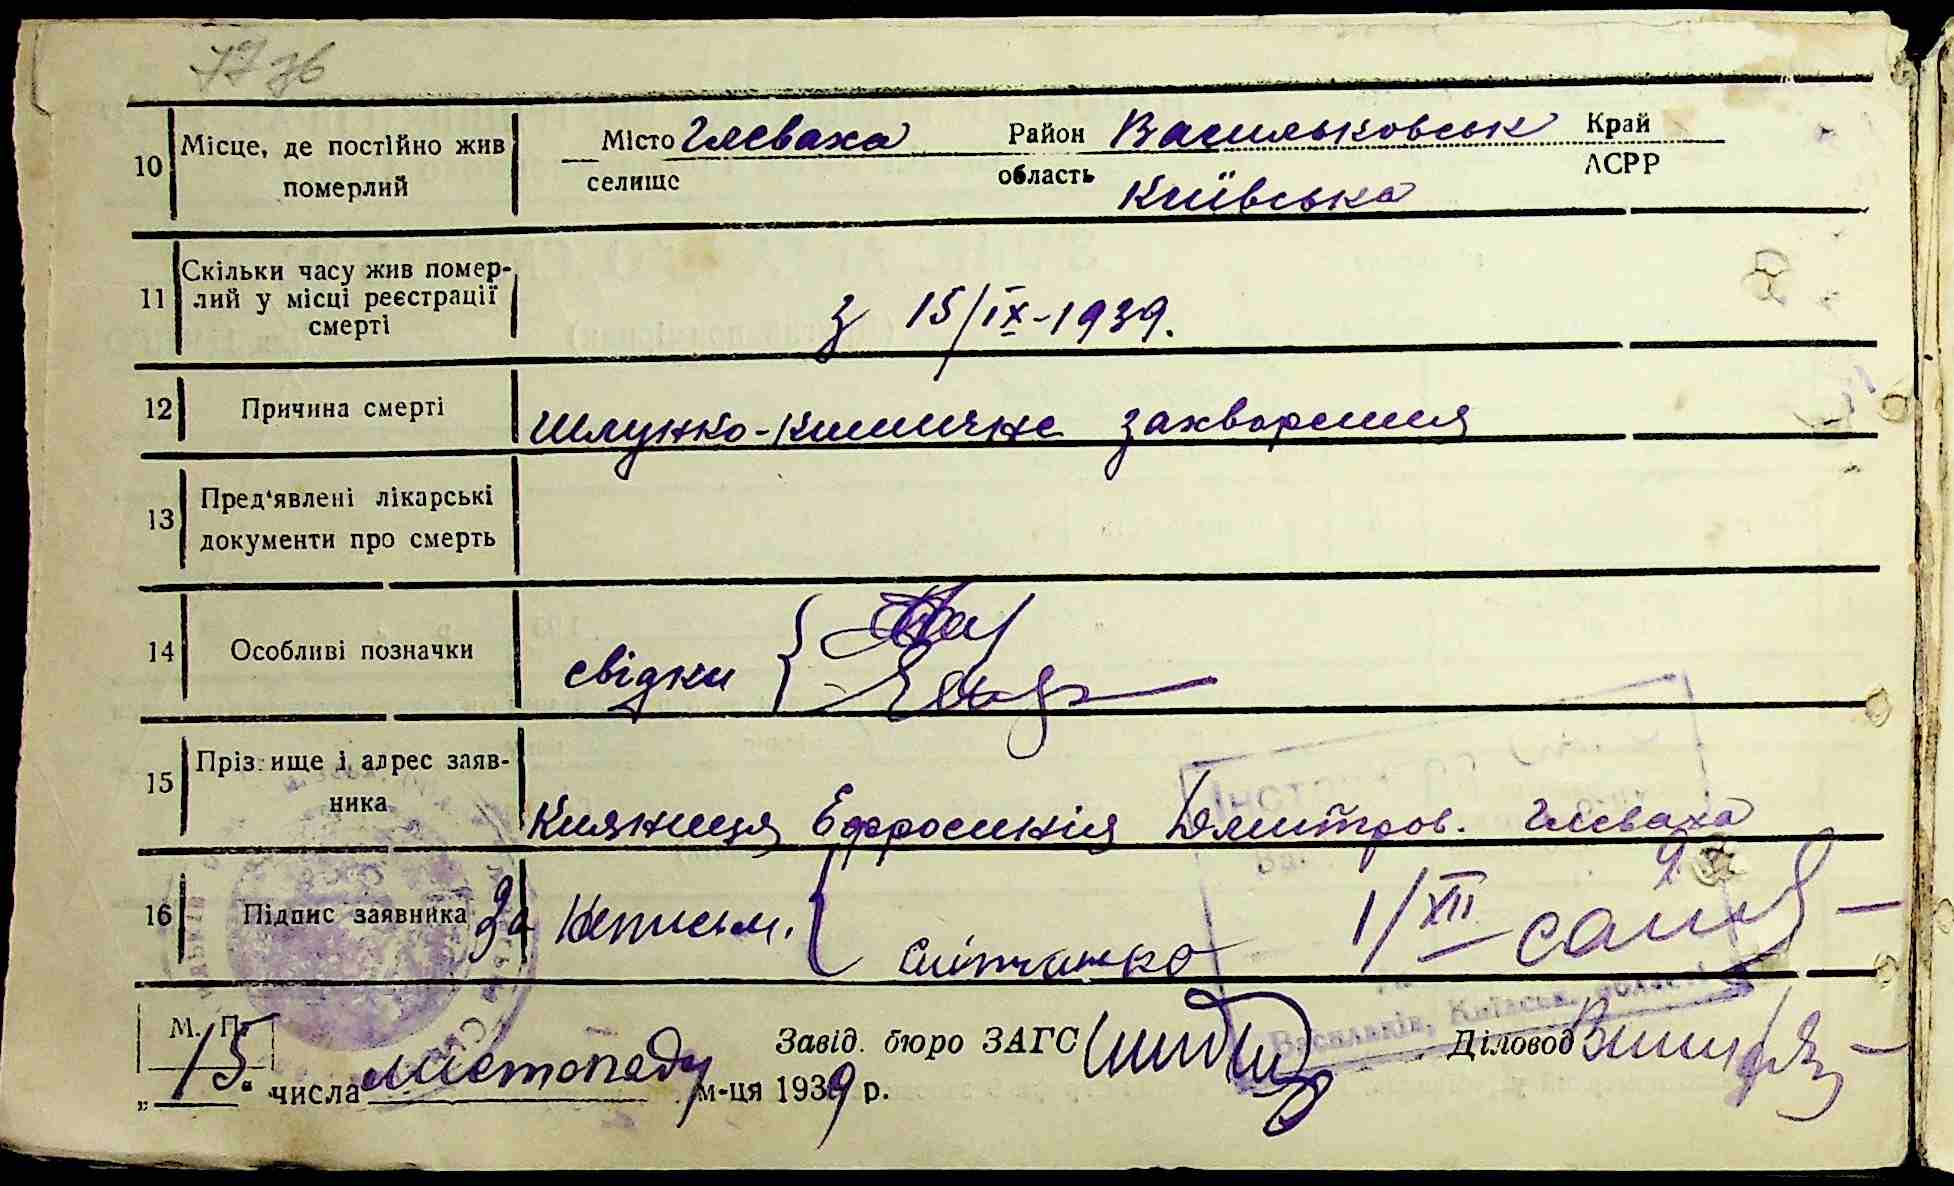 10 Місце, де постійно жив померлий
Місто Глеваха Район Васильковськ Край
селище область Київська АСРР
11 Скільки часу жив помер-
лий у місці реєстрації
смерті
з 15/IX-1939.
12 Причина смерті
Шлунко-кишечне захворення
13 Пред'явлені лікарські
документи про смерть
14 Особливі позначки
свідки
15 Прізвище і адрес заяв-
ника
Княжиця Ефросинія Дмитров. Глеваха
16 Підпис заявника За неписьм.
1/XII
М. П.
„15." числа листопаду м-ця 1939 р.
Завід. бюро ЗАГС
Діловод
Васильків, Київськ. області